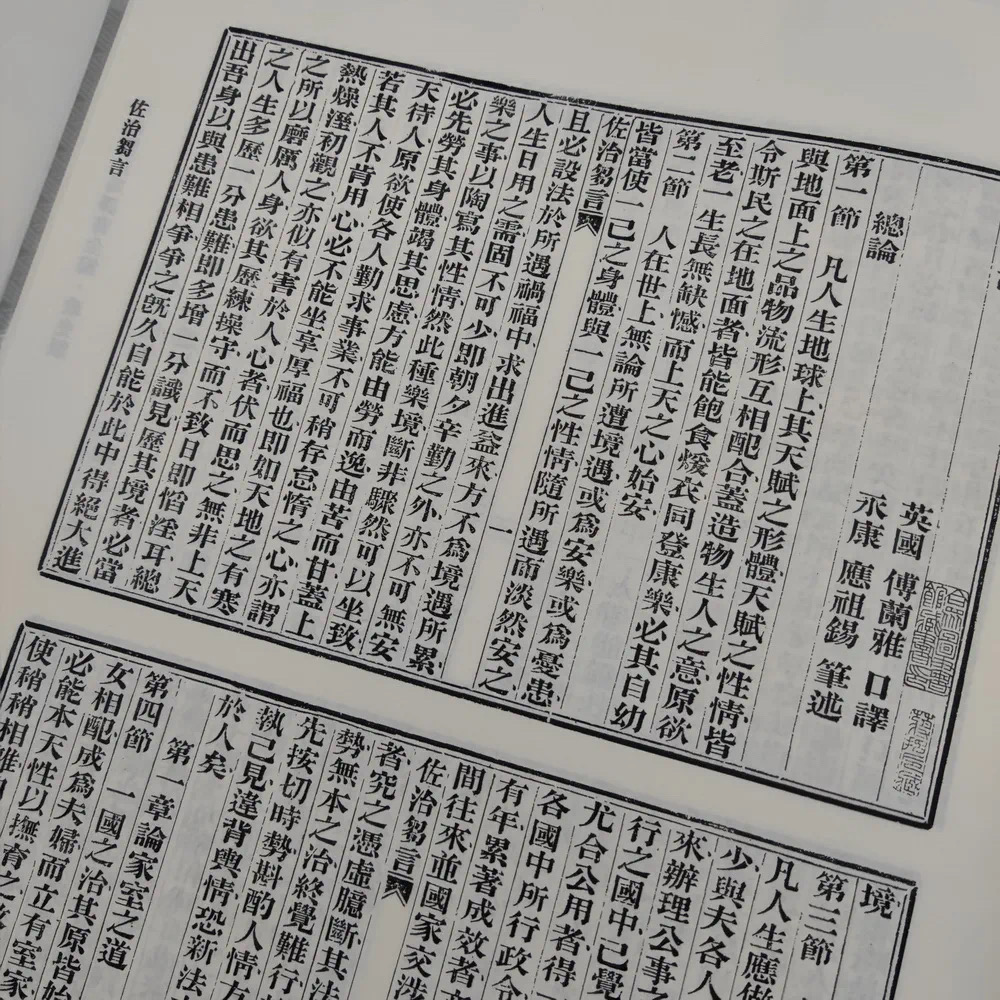 英國 傅蘭雅 口譯
永康 應祖錫 筆述
總論
第一節 凡人生地球上其天賦之形體天賦之性情皆
與地面上之品物流形互相配合蓋造物生人之意原欲
令斯民之在地面者皆能飽食煖衣同登康樂必其自幼
至老一生長無缺憾而上天之心始安
第二節 人在世上無論所遭境遇或爲安樂或爲憂患
皆當使一己之身體與一己之性情隨所遇而淡然安之
佐治芻言 一
且必設法於所遇禍福中求出進益來方不爲境遇所累
人生日用之需固不可少即朝夕辛勤之外亦不可無安
樂之事以陶寫其性情然此種樂境斷非驟然可以坐致
必先勞其身體竭其思慮方能由勞而逸由苦而甘蓋上
天待人原欲使各人勤求事業不可稍存怠惰之心亦謂
若其人不肯用心必不能坐享厚福也即如天地之有寒
熱燥溼初觀之亦似有害於人心者伏而思之無非上天
之所以磨厲人身欲其歷練操守而不致日即慆淫耳總
之人生多歷一分患難即多增一分識見歷其境者必當
出吾身以與患難相爭爭之旣久自能於此中得絕大進
佐治芻言
境
第三節
凡人生應做
少與夫各人
來辦理公事
行之國中已覺
尤合公用者得
各國中所行政令
有年累著成效者
間往來並國家交涉
佐治芻言
者究之憑虛臆斷其
勢無本之治終覺難行
先按切時勢斟酌人情方
執己見違背輿情恐新法
於人矣
第一章論家室之道
第四節 一國之治其原皆始
女相配成爲夫婦而立有室家
必能本天性以撫育之
使稍稍相